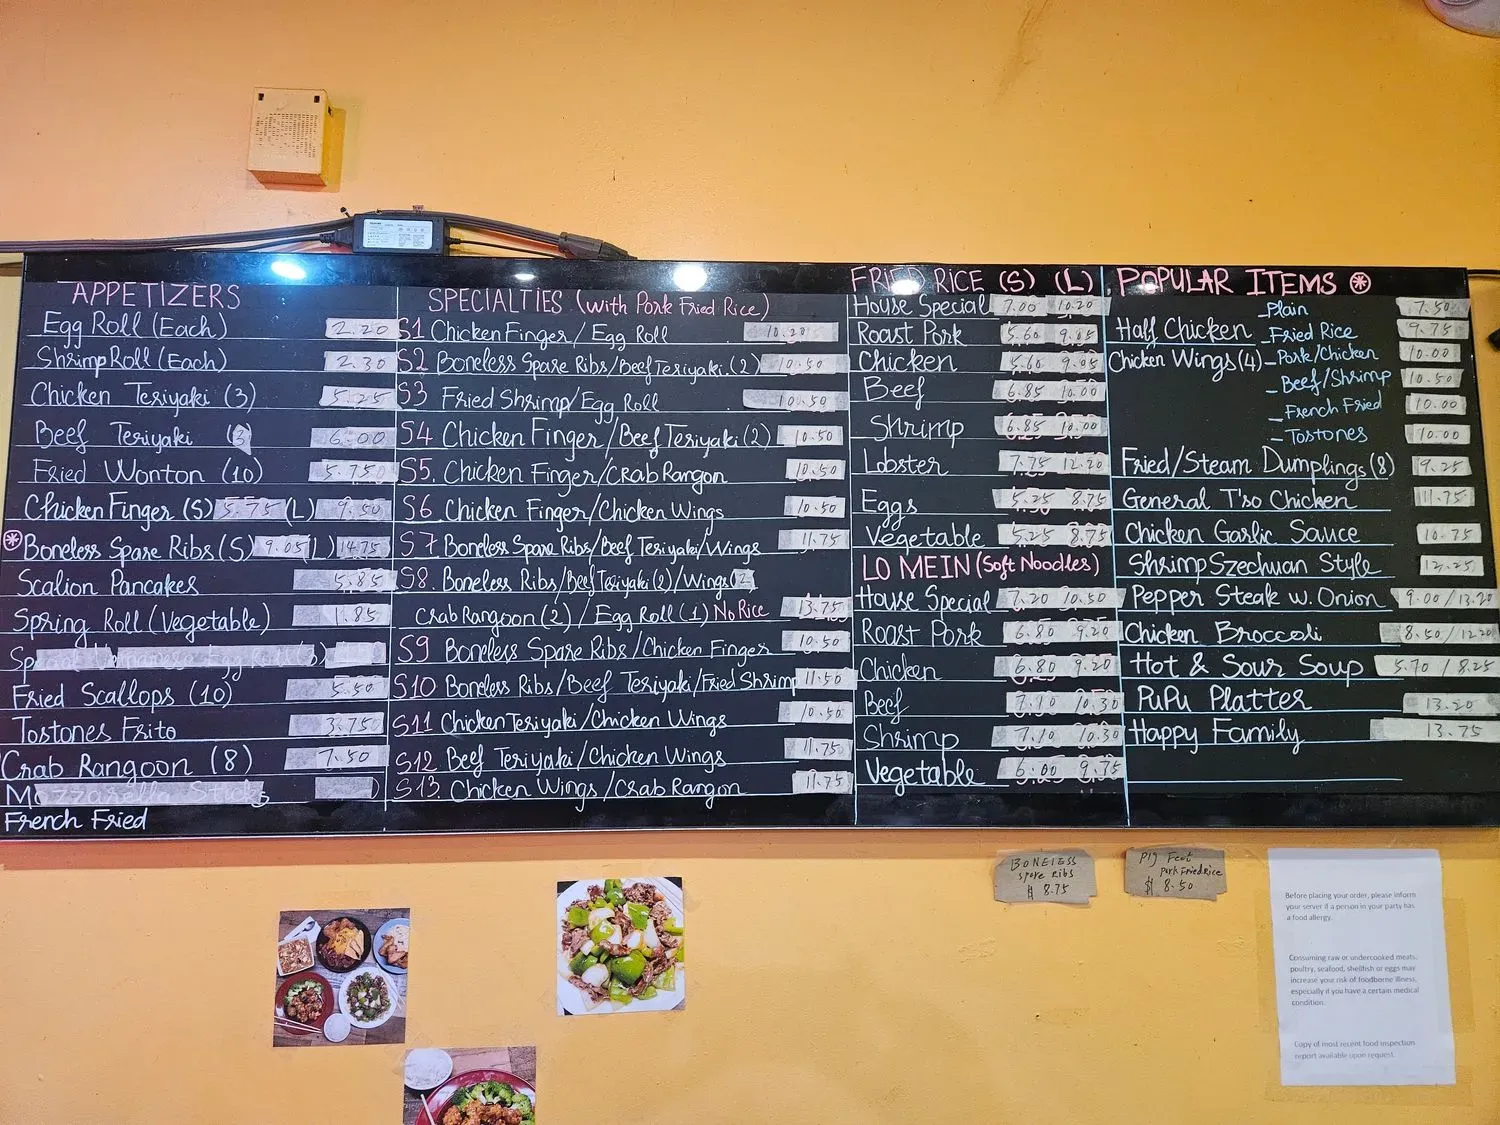 APPETIZERS
Egg Roll (Each) 2.20
Shrimp Roll (Each) 2.30
Chicken Teriyaki (3) 5.25
Beef Teriyaki (3) 6.00
Fried Wonton (10) 5.750
Chicken Finger (S) 5.75 (L) 9.50
Boneless Spare Ribs (S) 9.05 (L) 14.75
Scalion Pancakes 5.85
Spring Roll (Vegetable) 1.85
Fried Scallops (10) 5.50
Tostones Frito 3.750
Crab Rangoon (8) 7.50
Mozzarella Sticks
French Fried
SPECIALTIES (with Pork Fried Rice)
S1 Chicken Finger/ Egg Roll 10.20
S2 Boneless Spare Ribs/Beef Teriyaki (2) 10.50
S3 Fried Shrimp/Egg Roll 10.50
S4 Chicken Finger/Beef Teriyaki (2) 10.50
S5. Chicken Finger/Crab Rangon 10.50
S6 Chicken Finger/Chicken Wings 10.50
S7 Boneless Spare Ribs/Beef Teriyaki/Wings 11.75
S8. Boneless Ribs/Beef Teriyaki (2)/Wings (2
Crab Rangoon (2) / Egg Roll (1) No Rice 13.75
S9 Boneless Spare Ribs/Chicken Finger 10.50
S10 Boneless Ribs/Beef Teriyaki/Fried Shrimp 11.50
S11 Chicken Teriyaki/Chicken Wings 10.50
S12 Beef Teriyaki/Chicken Wings 11.75
S13. Chicken Wings/Crab Rangon 11.75
FRIED RICE (S) (L)
House Special 7.00 10.20
Roast Pork 5.60 9.05
Chicken 5.60 9.05
Beef 6.85 10.00
Shrimp 6.85 10.00
Lobster 7.75 12.20
Eggs 5.25 8.75
Vegetable 5.25 8.75
LO MEIN (Soft Noodles)
House Special 7.20 10.50
Roast Pork 6.80 9.20
Chicken 6.80 9.20
Beef 7.10 10.30
Shrimp 7.10 10.30
Vegetable 6.00 9.75
POPULAR ITEMS
Plain 7.50
Half Chicken - Fried Rice 9.75
Chicken Wings (4) - Pork/Chicken 10.00
- Beef/Shrimp 10.50
- French Fried 10.00
- Tostones 10.00
Fried/Steam Dumplings (8) 9.25
General T'so Chicken 11.75
Chicken Garlic Sauce 10.75
Shrimp Szechuan Style 12.25
Pepper Steak w. Onion 9.00 / 13.20
Chicken Broccoli 8.50 / 12.20
Hot & Sour Soup 5.70 / 8.25
PuPu Platter 13.20
Happy Family 13.75
BONELESS
spare ribs
$ 8.75
Pig Feet
Pork Fried rice
$ 8.50
Before placing your order, please inform
your server if a person in your party has
a food allergy.
Consuming raw or undercooked meats,
poultry, seafood, shellfish or eggs may
increase your risk of foodborne illness,
especially if you have a certain medical
condition.
Copy of most recent food inspection
report available upon request.